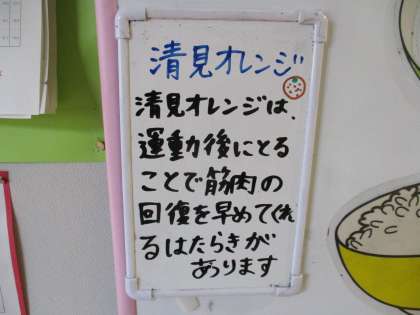 清見オレンジ
清見オレンジは、
運動後にとる
ことで筋肉の
回復を早めてくれ
るはたらきが
あります